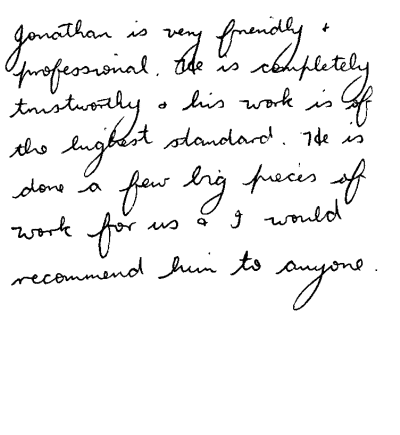 Jonathan is very friendly +
professional. He is completely
trustworthy & his work is of
the highest standard. He is
done a few big pieces of
work for us & I would
recommend him to anyone.